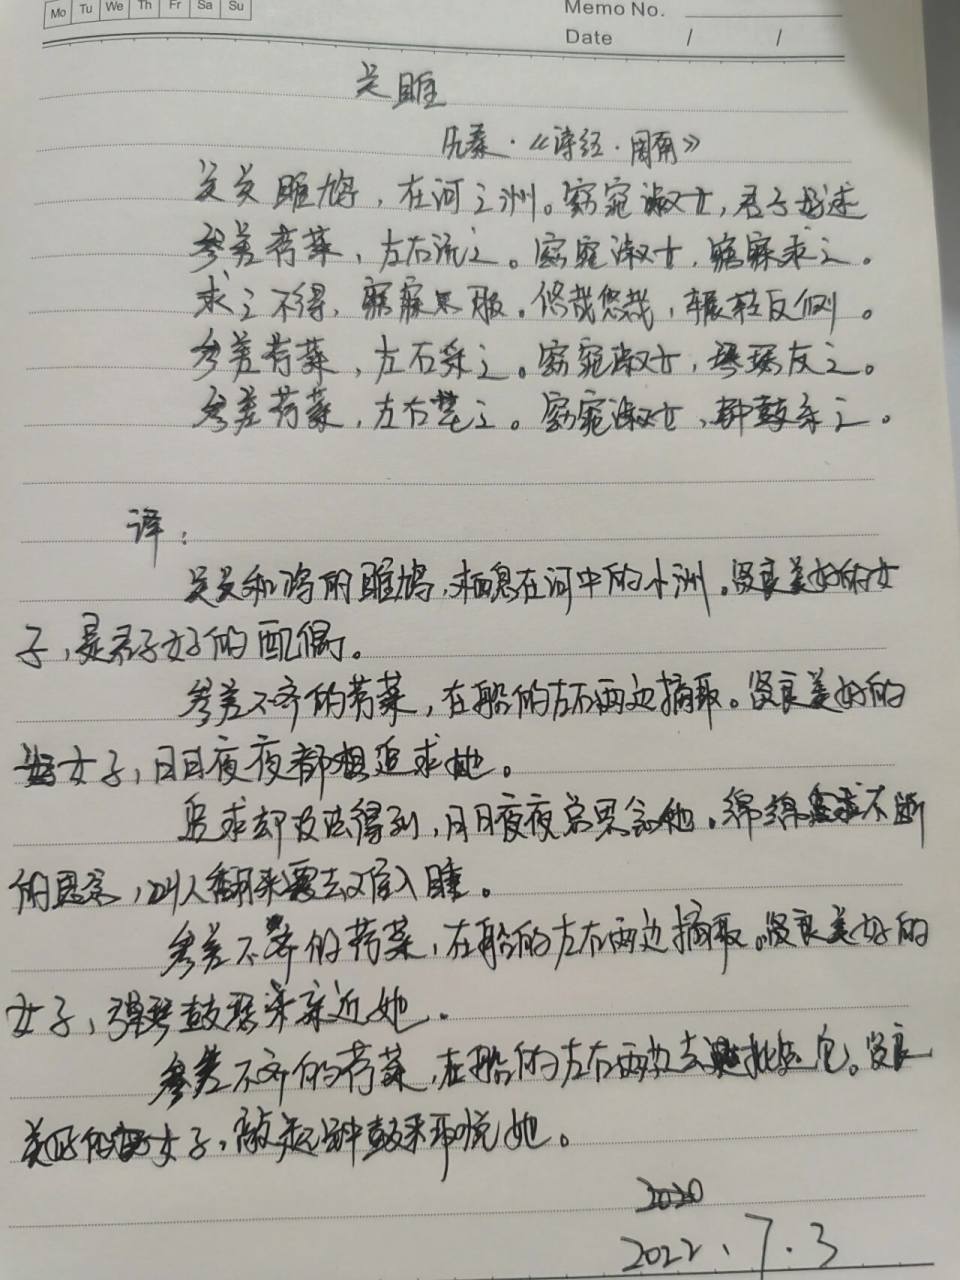 Mo Tu We Th Fr Sa Su
Memo No.
Date / /
关雎
先秦·《诗经·周南》
关关雎鸠，在河之洲。窈窕淑女，君子好逑
参差荇菜，左右流之。窈窕淑女，寤寐求之。
求之不得，寤寐思服。悠哉悠哉，辗转反侧。
参差荇菜，左右采之。窈窕淑女，琴瑟友之。
参差荇菜，左右芼之。窈窕淑女，钟鼓乐之。
译：
关关和鸣的雎鸠，栖息在河中的小洲。贤良美好的女
子，是君子好的配偶。
参差不齐的荇菜，在船的左右两边摘取。贤良美好的
女子，日日夜夜都想追求她。
追求却没法得到，日日夜夜总思念她。绵绵不断
的思念，叫人翻来覆去难入睡。
参差不齐的荇菜，在船的左右两边摘取。贤良美好的
女子，弹琴鼓瑟来亲近她。
参差不齐的荇菜，在船的左右两边去挑选它。贤良
美好的女子，敲起钟鼓来取悦她。
2020
2022.7.3